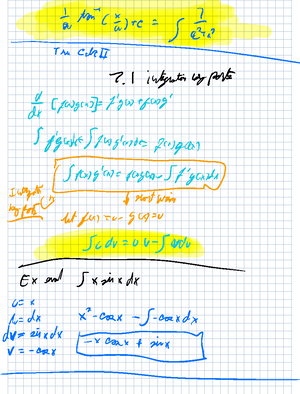 1/a tan⁻¹(x/a)+c = ∫ 1/a²+x²
Tru Calc II
7.1 integration by parts
d/dx [f(x)g(x)] = f'g(x)+f(x)g'
∫f'g(x)dx + ∫f(x)g'(x)dx = f(x)g(x)
∫f(x)g'(x) = f(x)g(x) - ∫f'g(x)dx
Integrate by parts
let f(x)=u g(x)=v
∫u dv = u v - ∫v du
Ex ∫x sin x dx
u = x
du = dx
dv = sin x dx
v = -cos x
x·-cos x - ∫-cos x dx
-x cos x + sin x